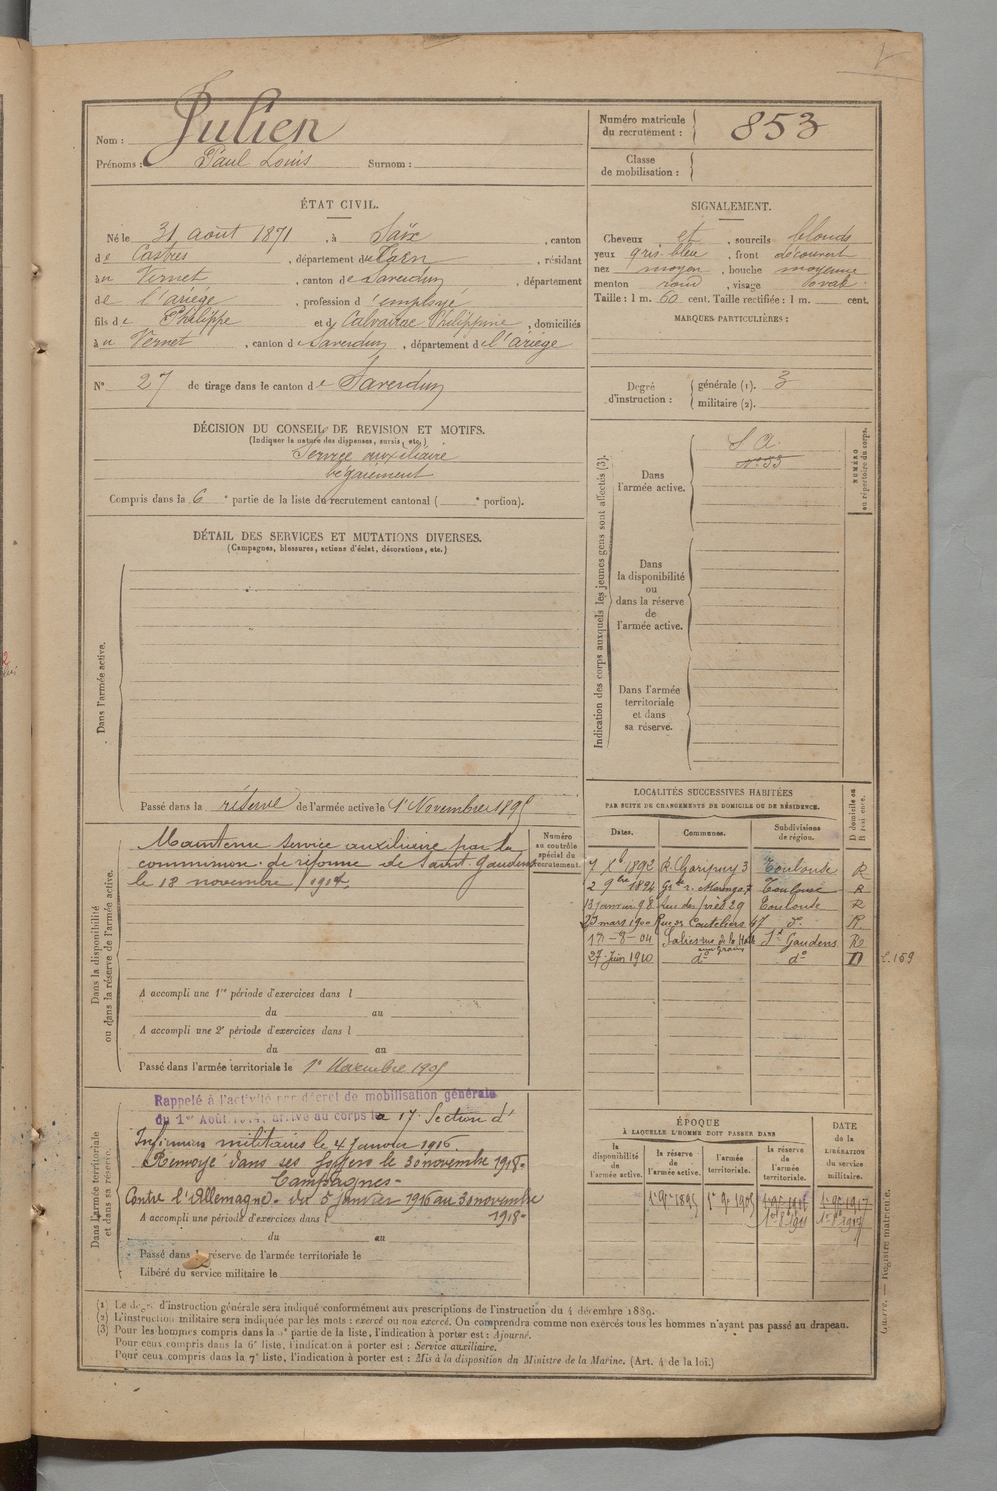 Nom : Julien
Prénoms : Paul Louis Surnom :
Numéro matricule du recrutement : 853
Classe de mobilisation :
ÉTAT CIVIL.
Né le 31 août 1871, à Saïx, canton
de Castres, département du Tarn, résidant
à u Vernet, canton de Saverdun, département
de l'ariège, profession d'employé
fils de Philippe et d Calvairac Philippine, domiciliés
à u Vernet, canton de Saverdun, département de l'ariège
N° 27 de tirage dans le canton de Saverdun
SIGNALEMENT.
Cheveux et, sourcils blonds
yeux gris bleu, front découvert
nez moyen, bouche moyenne
menton rond, visage oval
Taille : 1 m. 60 cent. Taille rectifiée : 1 m. cent.
MARQUES PARTICULIÈRES :
Degré d'instruction : générale (1). 3
militaire (2).
DÉCISION DU CONSEIL DE REVISION ET MOTIFS.
(Indiquer la nature des dispenses, sursis, etc.)
Service auxiliaire
bégaiement
Compris dans la 6e partie de la liste du recrutement cantonal ( e portion).
DÉTAIL DES SERVICES ET MUTATIONS DIVERSES.
(Campagnes, blessures, actions d'éclat, décorations, etc.)
Dans l'armée active.
Passé dans la réserve de l'armée active le 1er Novembre 1895
Indication des corps auxquels les jeunes gens sont affectés (3).
NUMÉRO au répertoire du corps.
Dans l'armée active.
S A.
N° 53
Dans la disponibilité ou dans la réserve de l'armée active.
Dans l'armée territoriale et dans sa réserve.
Dans la disponibilité ou dans la réserve de l'armée active.
Maintenu service auxiliaire par la
commission de réforme de Saint Gaudens
le 18 novembre 1914.
Numéro au contrôle spécial du recrutement.
A accompli une 1re période d'exercices dans l
du au
A accompli une 2e période d'exercices dans l
du au
Passé dans l'armée territoriale le 1er Novembre 1905
LOCALITÉS SUCCESSIVES HABITÉES
PAR SUITE DE CHANGEMENTS DE DOMICILE OU DE RÉSIDENCE.
Dates. Communes. Subdivisions de région. D domicile ou R résidence.
7 Xbre 1892 R. Charipuy 3 Toulouse R
2 9bre 1894 Gde r. Marengo 7 Toulouse R
13 janvier 98 Rue des frères 29 Toulouse R
23 mars 1900 Rue des Couteliers 47 do R.
17-8-04 Salies rue de la Halle aux Grains St Gaudens Re
27 Juin 1910 do do D
Dans l'armée territoriale et dans sa réserve.
Rappelé à l'activité par décret de mobilisation générale
du 1er Août 1914. arrivé au corps la 17e Section d'
Infirmiers militaires le 4 Janvier 1916.
Renvoyé dans ses foyers le 30 novembre 1918.
Campagnes-
Contre l'Allemagne. du 5 janvier 1916 au 30 novembre
1918.
A accompli une période d'exercices dans l
du au
Passé dans la réserve de l'armée territoriale le
Libéré du service militaire le
ÉPOQUE
À LAQUELLE L'HOMME DOIT PASSER DANS
la disponibilité de l'armée active. la réserve de l'armée active. l'armée territoriale. la réserve de l'armée territoriale.
DATE de la LIBÉRATION du service militaire.
1er 9bre 1895 1er 9bre 1905 1er 9bre 1911 1er 9bre 1917
1er 8bre 1911 1er 8bre 1917
Guerre. — Registre matricule.
(1) Le degré d'instruction générale sera indiqué conformément aux prescriptions de l'instruction du 4 décembre 1889.
(2) L'instruction militaire sera indiquée par les mots : exercé ou non exercé. On comprendra comme non exercés tous les hommes n'ayant pas passé au drapeau.
(3) Pour les hommes compris dans la 5e partie de la liste, l'indication à porter est : Ajourné.
Pour ceux compris dans la 6e liste, l'indication à porter est : Service auxiliaire.
Pour ceux compris dans la 7e liste, l'indication à porter est : Mis à la disposition du Ministre de la Marine. (Art. 4 de la loi.)